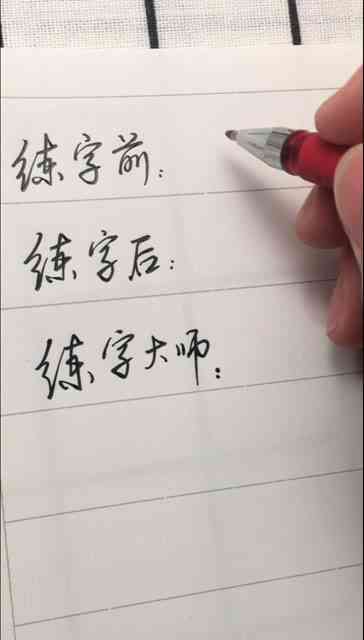 练字前：
练字后：
练字大师：